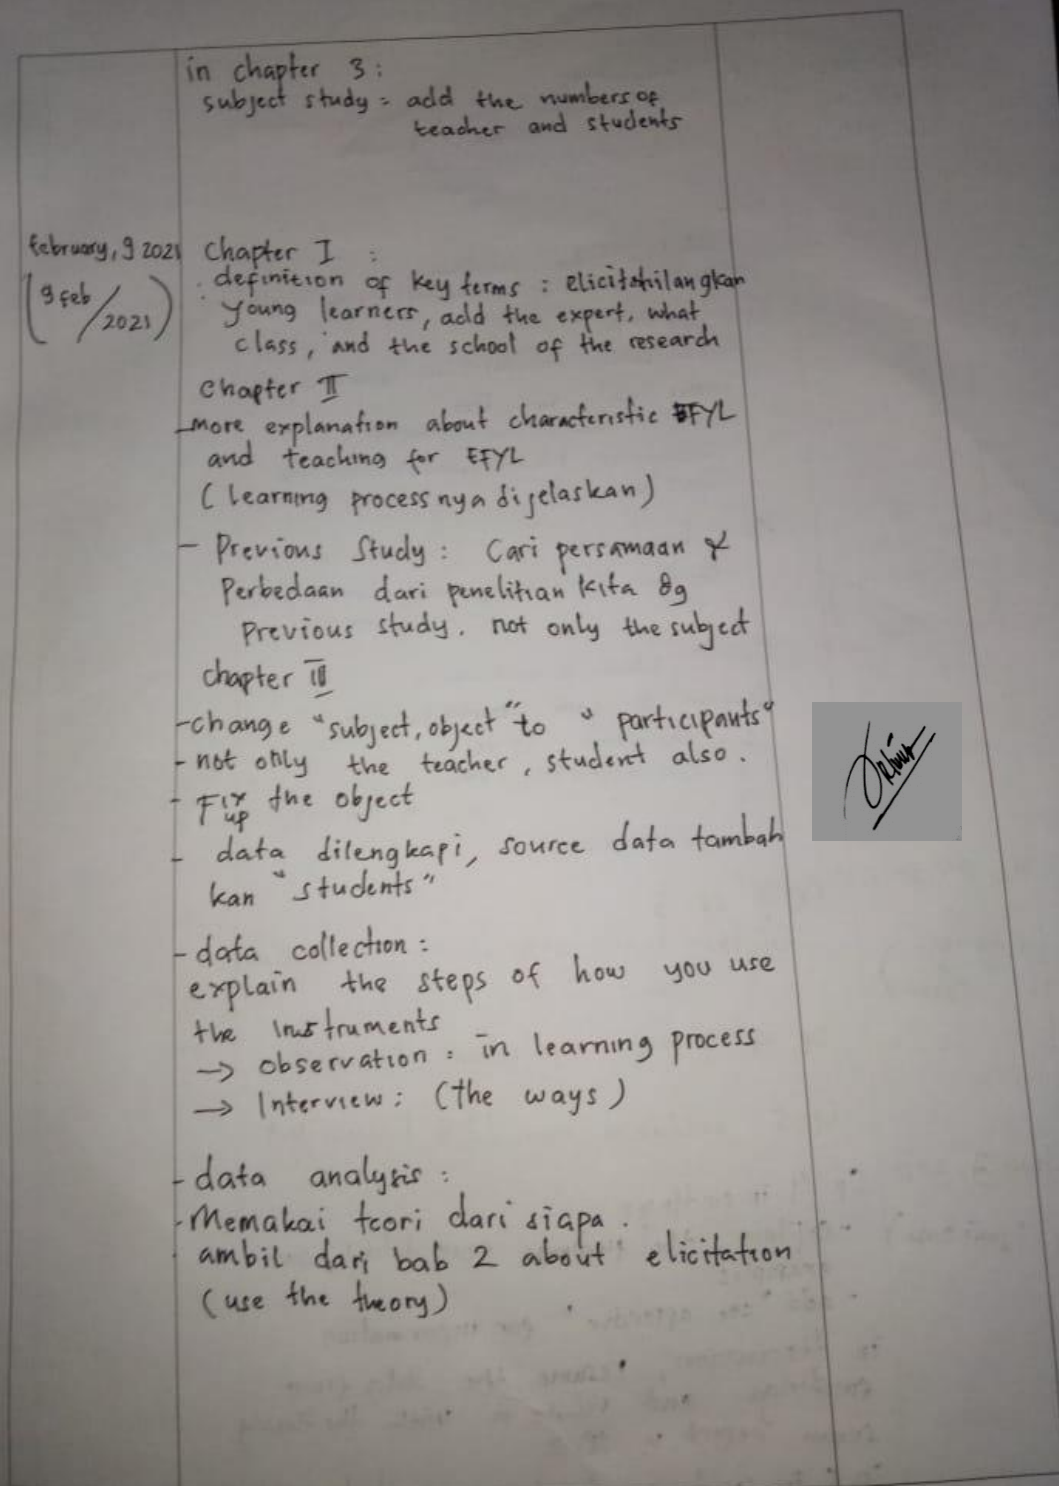 in chapter 3 :
subject study = add the numbers of
teacher and students
february, 9 2021
(9 feb/2021)
Chapter I :
. definition of key terms : elicit hilangkan
young learners, add the expert, what
class, and the school of the research
Chapter II
- more explanation about characteristic EFYL
and teaching for EFYL
( learning process nya dijelaskan )
- Previous Study : Cari persamaan &
Perbedaan dari penelitian kita dg
Previous study. not only the subject
chapter III
- change "subject, object" to "participants"
- not only the teacher, student also.
- Fix up the object
- data dilengkapi, source data tambah
kan "students"
- data collection :
explain the steps of how you use
the instruments
→ observation : in learning process
→ Interview : (the ways)
- data analysis :
- Memakai teori dari siapa.
ambil dari bab 2 about elicitation
(use the theory)